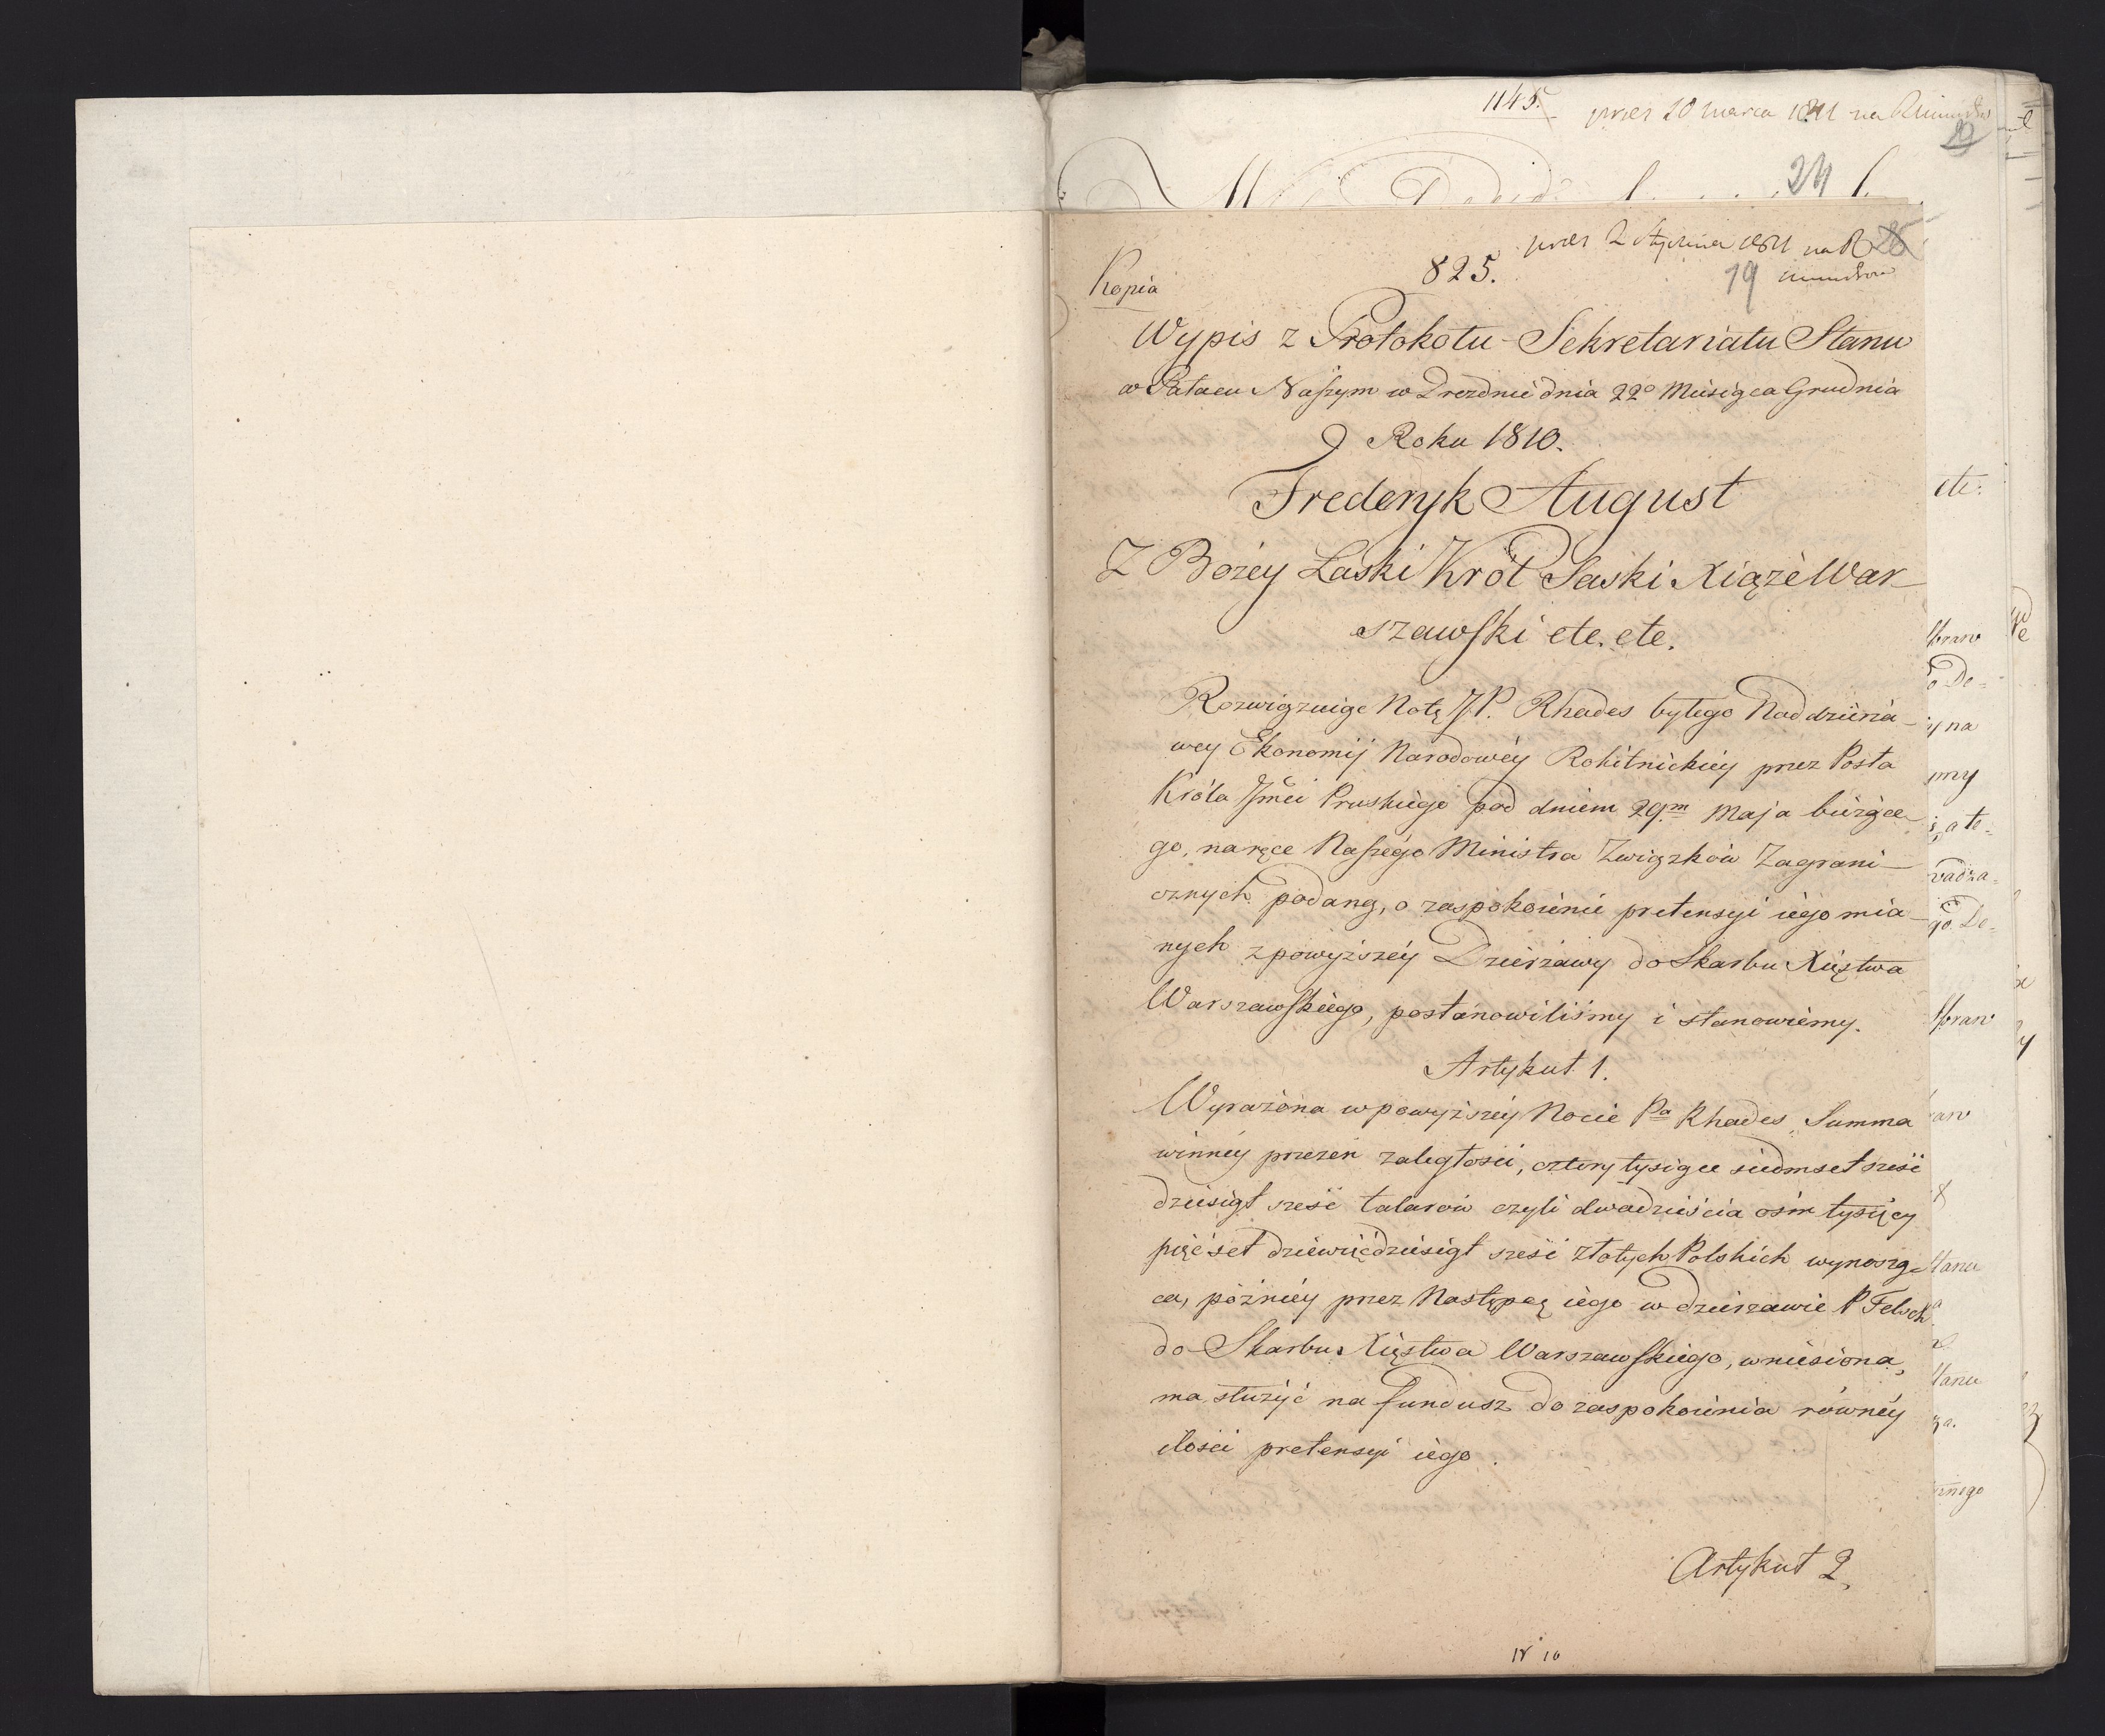 1145.
przez 20 marca 1811 na
29
24
przez 2 Stycznia 1811 na R
26
19
Kopia
825.
Wypis z Protokołu Sekretariatu Stanu
w Pałacu Naszym w Dreznie dnia 22º Miesiąca Grudnia
Roku 1810.
Frederyk August
Z Bożey Łaski Król Saski Xiąże War-
szawski etc. etc.
Rozwiązuiąc Notę JP. Rhades byłego Naddzierża-
wcy Ekonomij Narodowéy Rokitnickiey przez Posła
Króla Jmci Pruskiego pod dniem 29m Maja bieżące-
go, na ręce Naszego Ministra Związków Zagrani-
cznych podaną, o zaspokoienie pretensyi iego mia-
nych z powyższéy Dzierżawy do Skarbu Xięstwa
Warszawskiego, postanowiliśmy i stanowiemy.
Artykuł 1.
Wyrażona w powyższéy Nocie Pa Rhades, Summa
winnéy przezeń zaległości, cztery tysiące siedmset sześć
dziesiąt sześć talarów czyli dwadzieścia ośm tysięcy
pięćset dziewięćdziesiąt sześć złotych Polskich wynoszą-
ca, późniéy przez Następcę iego w dzierzawie P Felsch
do Skarbu Xięstwa Warszawskiego, wniesiona,
ma służyć na fundusz do zaspokoienia równéy
ilości pretensyi iego.
Artykuł 2,
18 10
etc: